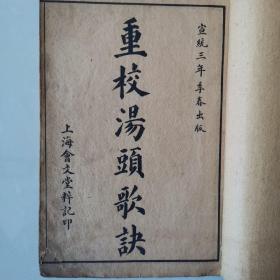 宣統三年季春出版
重校湯頭歌訣
上海會文堂粹記印